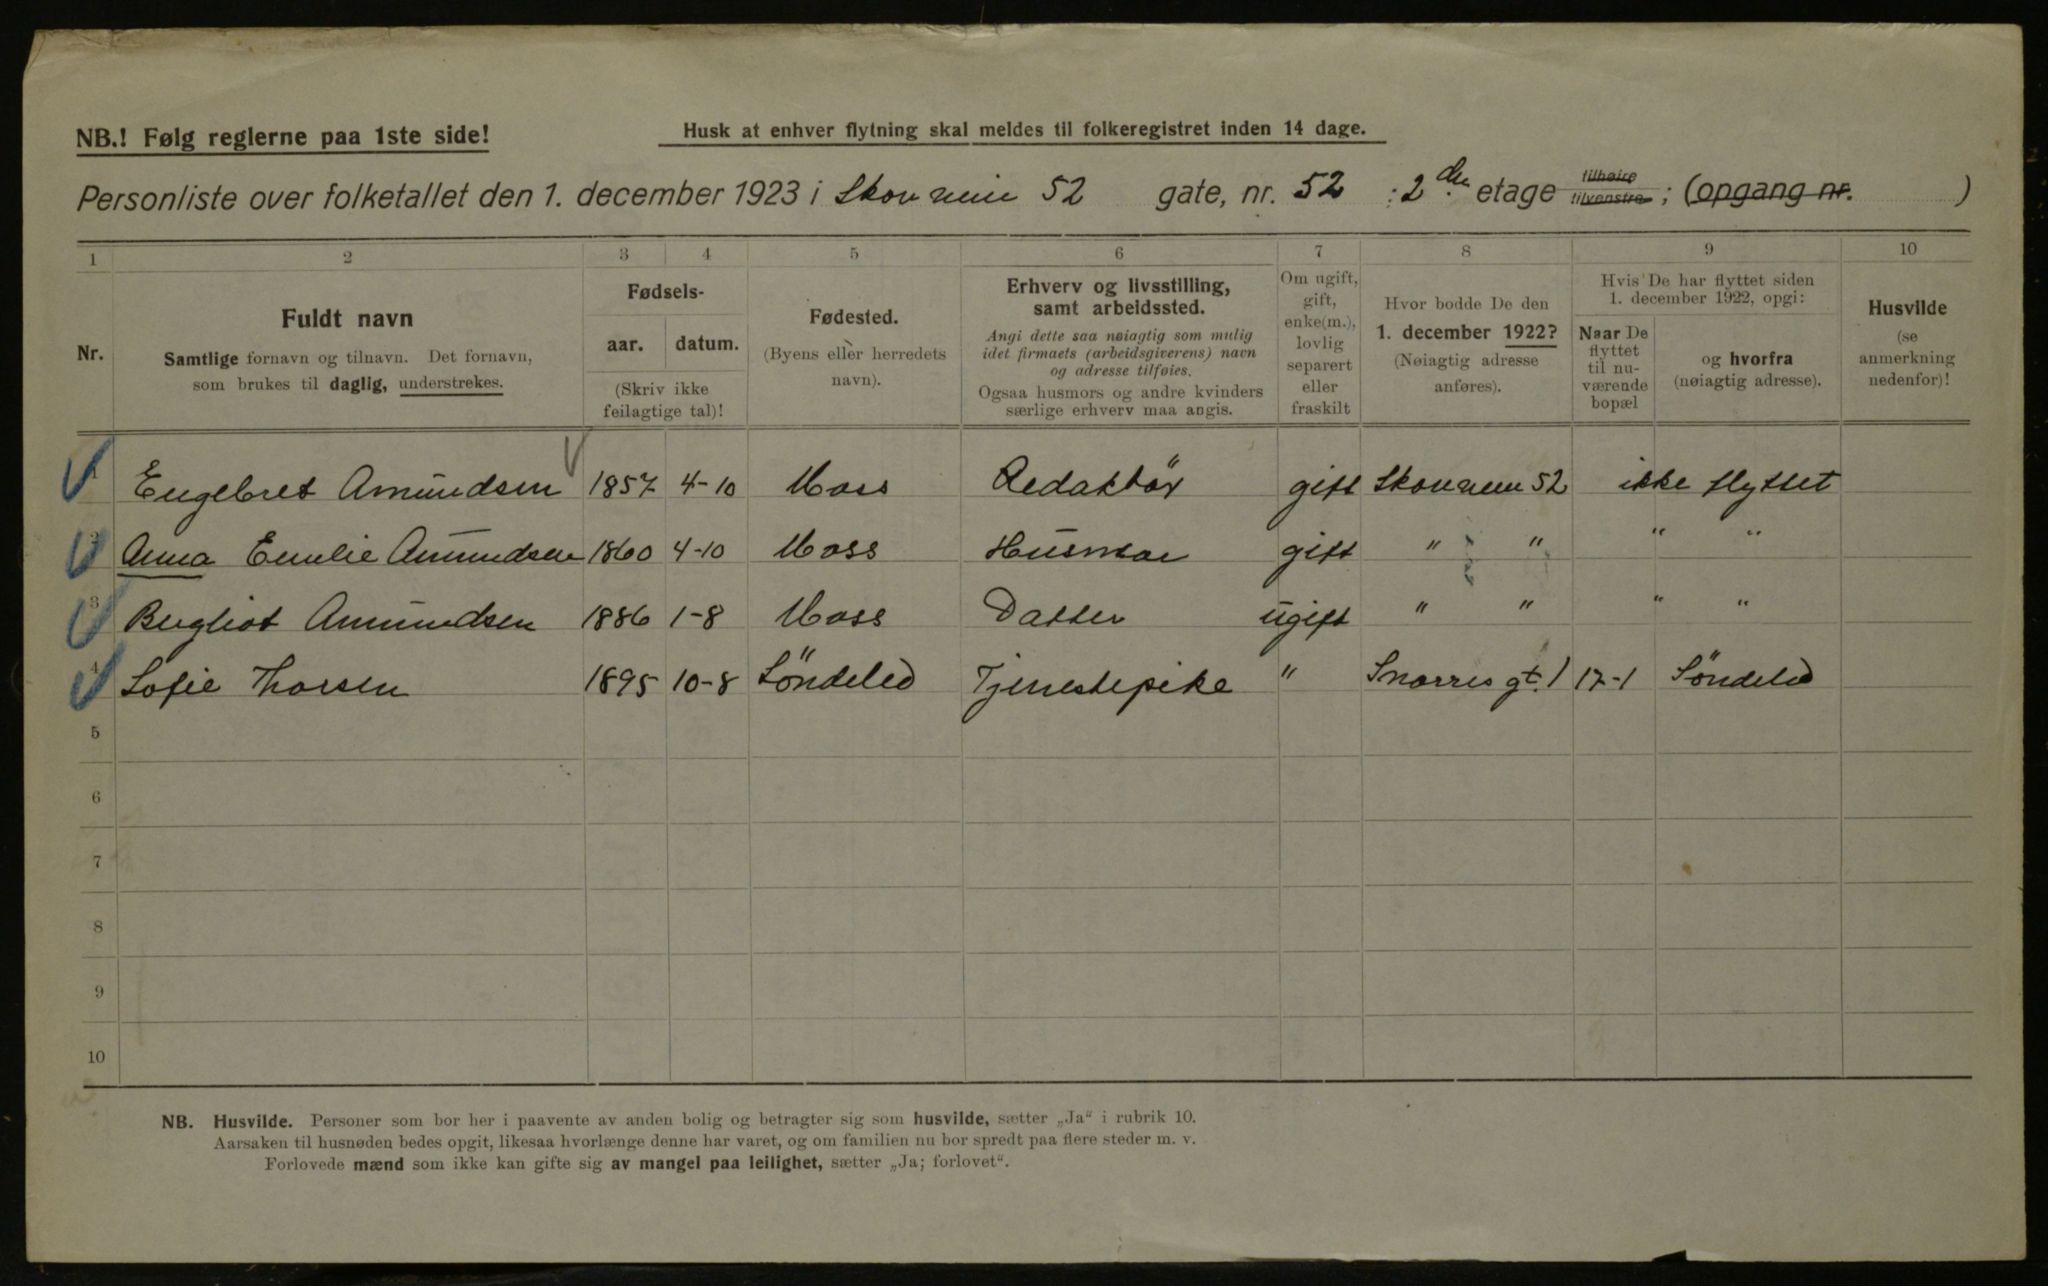 NB.! Følg reglerne paa 1ste side!
Husk at enhver flytning skal meldes til folkeregistret inden 14 dage.
Personliste over folketallet den 1. december 1923 i Skovveien 52 gate, nr. 52 : 2 den etage tilhøire tilvenstre; (opgang nr. )
1 2 3 4 5 6 7 8 9 10
Nr.
Fuldt navn
Samtlige fornavn og tilnavn. Det fornavn,
som brukes til daglig, understrekes.
Fødsels-
aar. datum.
(Skriv ikke
feilagtige tal)!
Fødested.
(Byens eller herredets
navn).
Erhverv og livsstilling,
samt arbeidssted.
Angi dette saa nøiagtig som mulig
idet firmaets (arbeidsgiverens) navn
og adresse tilføies.
Ogsaa husmors og andre kvinders
særlige erhverv maa angis.
Om ugift,
gift,
enke(m.),
lovlig
separert
eller
fraskilt
Hvor bodde De den
1. december 1922?
(Nøiagtig adresse
anføres).
Hvis De har flyttet siden
1. december 1922, opgi:
Naar De
flyttet
til nu-
værende
bopæl
og hvorfra
(nøiagtig adresse).
Husvilde
(se
anmerkning
nedenfor)!
1 Engebret Amundsen 1857 4-10 Moss Redaktör gift Skovveien 52 ikke flyttet
2 Anna Emilie Amundsen 1860 4-10 Moss Husmor gift " " " "
3 Bergliot Amundsen 1886 1-8 Moss Datter ugift " " " "
4 Sofie Thorsen 1895 10-8 Söndeled Tjenestepike " Snorres gt. 1 17-1 Söndeled
5
6
7
8
9
10
NB. Husvilde. Personer som bor her i paavente av anden bolig og betragter sig som husvilde, sætter „Ja“ i rubrik 10.
Aarsaken til husnøden bedes opgit, likesaa hvorlænge denne har varet, og om familien nu bor spredt paa flere steder m. v.
Forlovede mænd som ikke kan gifte sig av mangel paa leilighet, sætter „Ja; forlovet“.